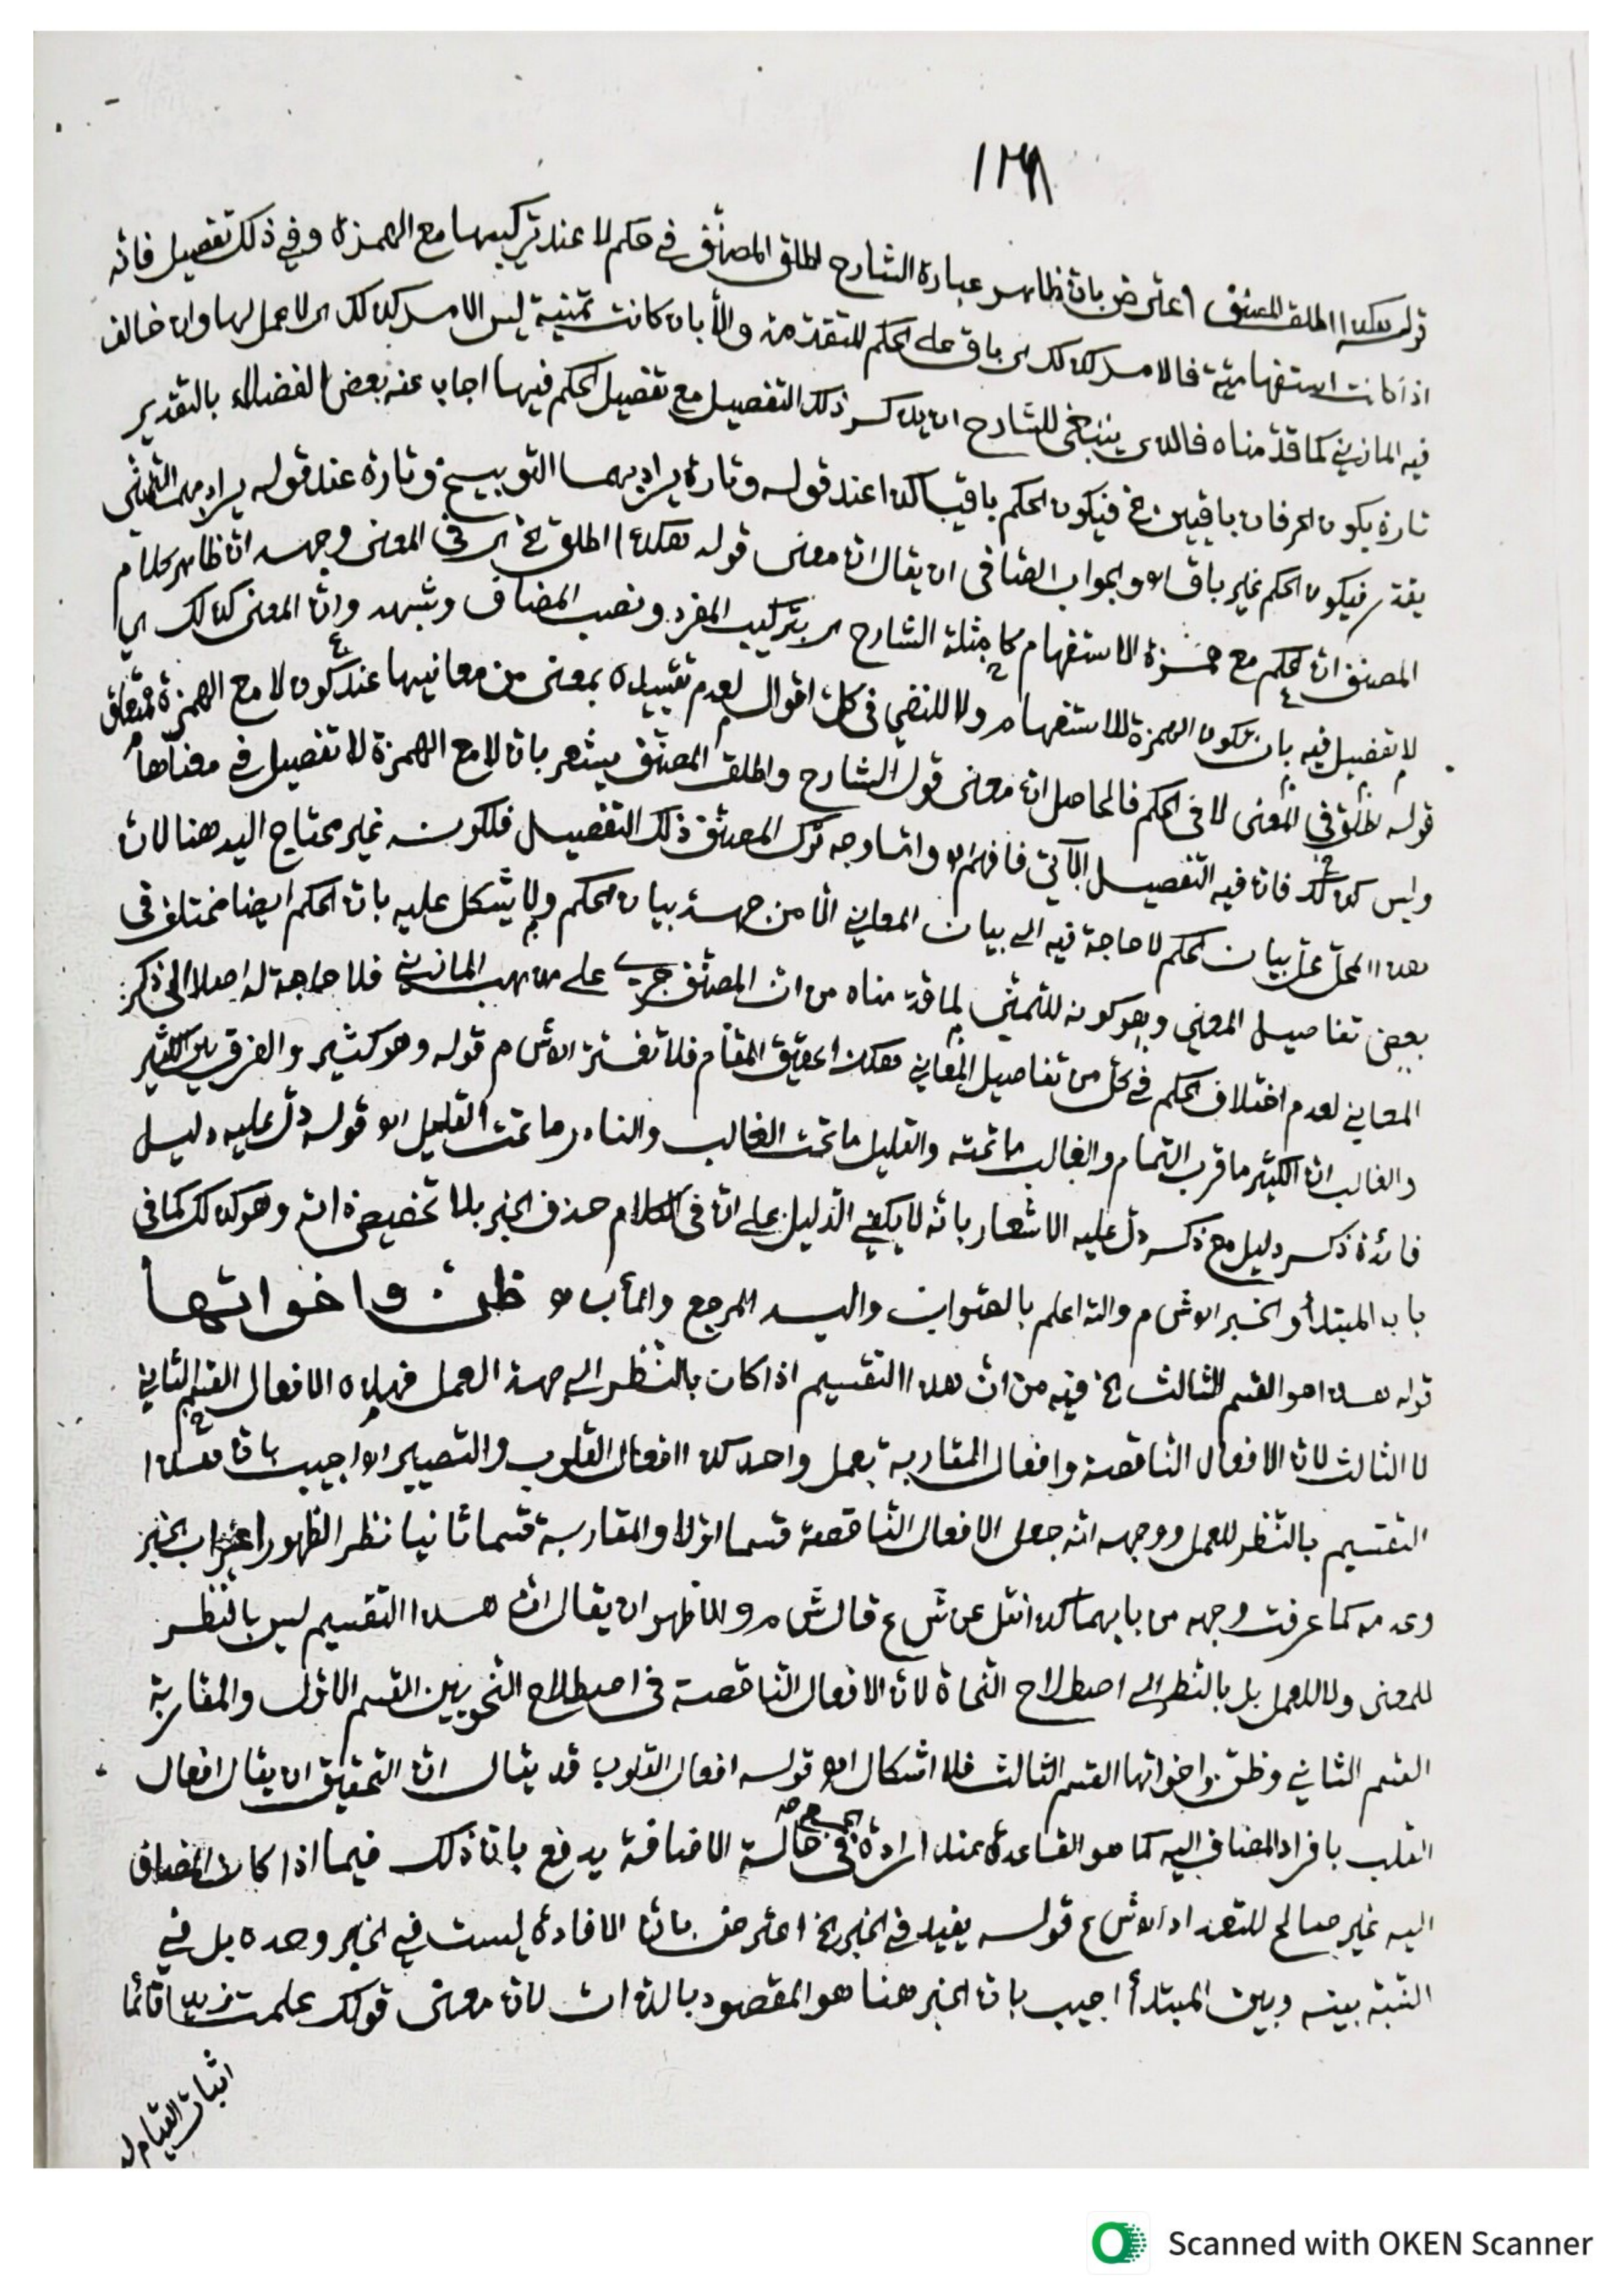 ١٣٨
قوله هكذا اطلق المصنف اعترض بان ظاهر عبارة الشارح اطلق المصنف في حكم لا عند تركيبها مع الهمزة وفي ذلك تفصيل فانه
اذا كانت استفهامية فالامر كذلك اى باق على الحكم المتقدم والا بان كانت تمنية ليس الامر كذلك اى لا عمل لها وان خالف
فيه المازني كما قدمناه فالذى ينبغي للشارح ان يذكر ذلك التفصيل مع تفصيل الحكم فيها اجاب عنه بعض الفضلاء بالتقدير
تارة يكون الحرفان باقيين الخ فيكون الحكم باقيا كذا عند قوله وتارة يراد بهما التوبيخ وتارة عند قوله يراد بهما التمني
يقدر فيكون الحكم غير باق اه والجواب الصافى ان يقال ان معنى قوله هكذا اطلق الخ اى في المعنى وجهه ان ظاهر كلام
المصنف ان الحكم مع همزة الاستفهام كما مثله الشارح اى بتركيب المفرد ونصب المضاف وشبهه وان المعنى كذلك اى
لا تفصيل فيه بان تكون الهمزة للاستفهام ولا للنفي في كل احوال لعدم تقييده بمعنى من معانيها عند كون لا مع الهمزة فمتعلق
قوله اطلق في المعنى لا في الحكم فالحاصل ان معنى قول الشارح واطلق المصنف يشعر بان لا مع الهمزة لا تفصيل في معناها
وليس كذلك فان فيه التفصيل الآتي فافهم اه واما وجه ترك المصنف ذلك التفصيل فلكونه غير محتاج اليه هنا لان
هذا المحل محل بيان الحكم لا حاجة فيه الى بيان المعاني الا من جهة بيان الحكم ولا يشكل عليه بان الحكم ايضا مختلف في
بعض تفاصيل المعنى وهو كونه للتمني لما قدمناه من ان المصنف جرى على مذهب المازني فلا حاجة له اصلا الى ذكر
المعاني لعدم اختلاف الحكم في كل من تفاصيل المعاني هكذا تحقيق المقام فلا تغتر اه ش م قوله وهو كثير والفرق بين الكثير
والغالب ان الكثير ما قرب التمام والغالب ما تحته والقليل ما تحت الغالب والنادر ما تحت القليل اه قوله دل عليه دليل
فائدة ذكر دليل مع ذكر دل عليه الاشعار بانه لا يكفي الدليل على ان في الكلام حذف الخبر بلا تخصيص ذاته وهو كذلك كما في
باب المبتدأ والخبر اه ش م والله اعلم بالصواب واليه المرجع والمأب اه ظن واخواتها
قوله هذا هو القسم الثالث الخ فيه من ان هذا التقسيم اذا كان بالنظر الى جهة العمل فهذه الافعال القسم الثاني
لا الثالث لان الافعال الناقصة وافعال المقاربة بعمل واحد كذا افعال القلوب والتصيير اه اجيب بان هذا
التقسيم بالنظر للعمل ووجهه انه جعل الافعال الناقصة قسما اولا والمقاربة قسما ثانيا نظر الظهور اعراب الخبر
وعدمه كما عرفت وجهه من بابهما كذا نقل عن ش ع قال ش م والاظهر ان يقال ان هذا التقسيم ليس بالنظر
للمعنى ولا للعمل بل بالنظر الى اصطلاح النحاة لان الافعال الناقصة في اصطلاح النحويين القسم الاول والمقاربة
القسم الثاني وظن واخواتها القسم الثالث فلا اشكال اه قوله افعال القلوب قد يقال ان التحقيق ان يقال افعال
القلب بافراد المضاف اليه كما هو القاعدة عند ارادة الجمع في حالة الاضافة يدفع بان ذلك فيما اذا كان المضاف
اليه غير صالح للتعداد اه ش ع قوله يفيد في الخبر الخ اعترض بان الافادة ليست في الخبر وحده بل في
النسبة بينه وبين المبتدأ اجيب بان الخبر هنا هو المقصود بالذات لان معنى قولك علمت زيدا قائما
اثبات القيام له
Scanned with OKEN Scanner